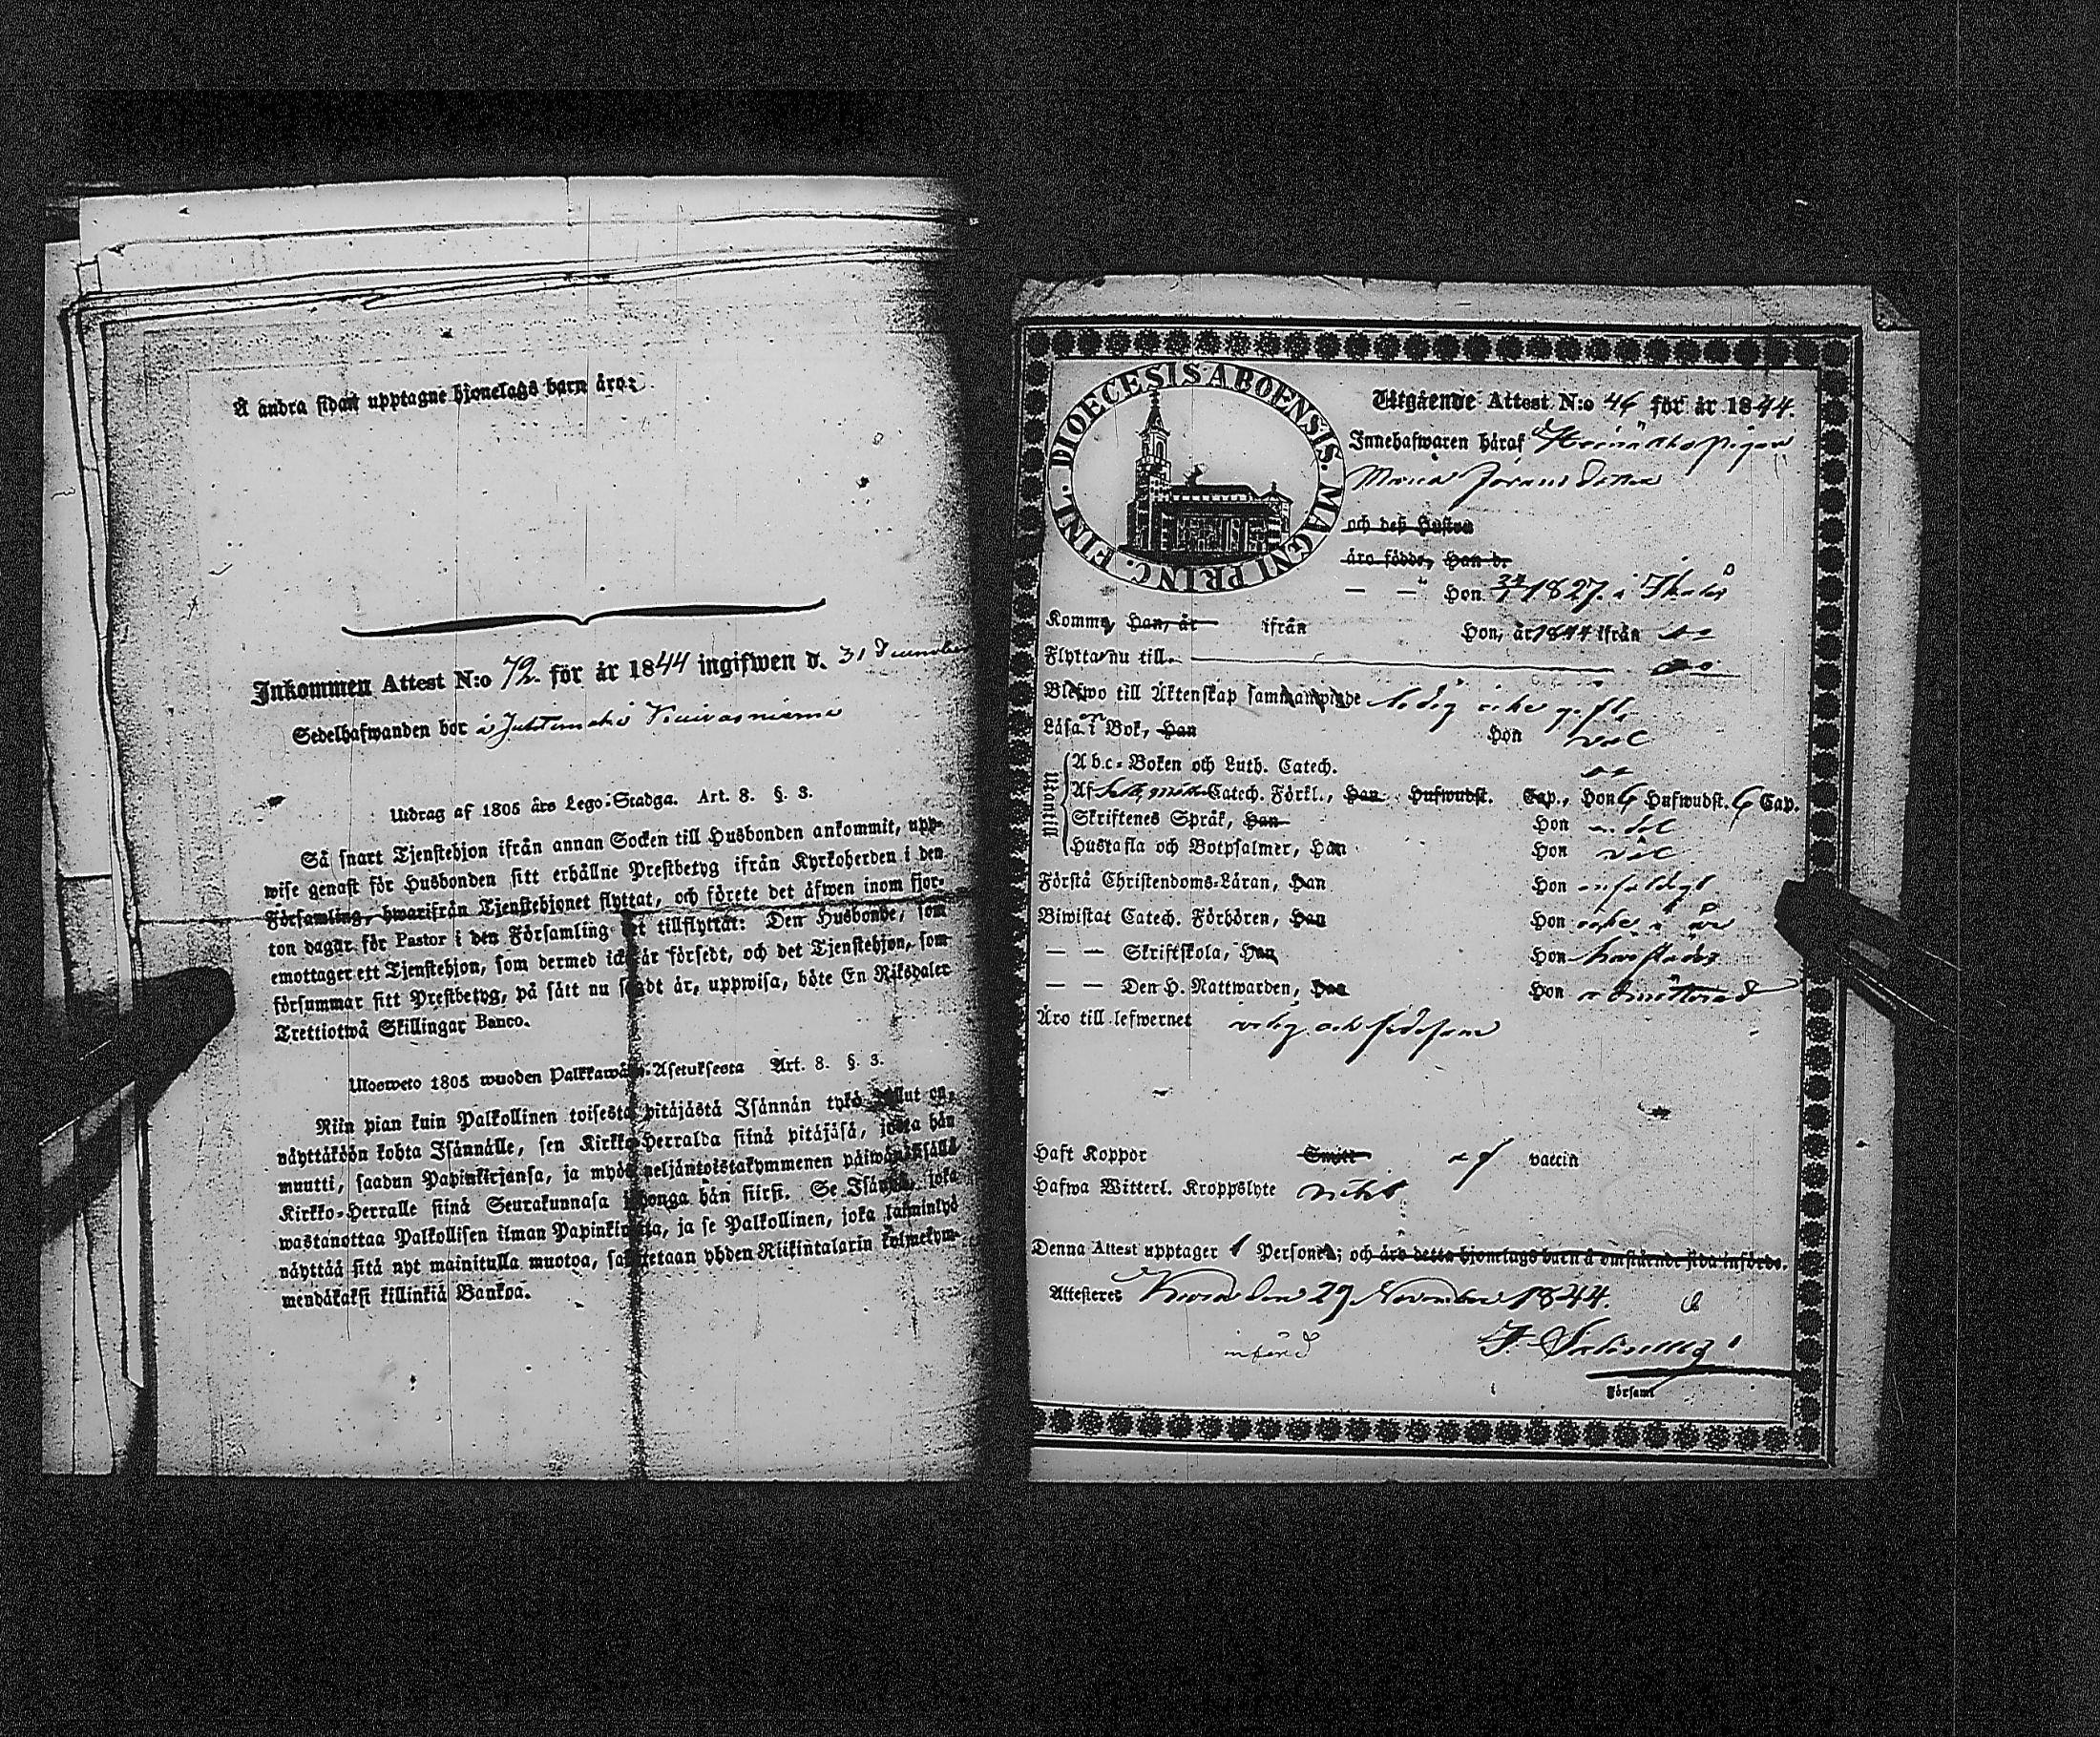 Å andra sidan upptagne hjonelags barn äro:
Inkommen Attest N:o 72. för år 1844 ingifwen d. 31 December
Sedelhafwanden bor å
Utdrag af 1805 års Lego-Stadga. Art. 8. §. 3.
Så snart Tjenstehjon ifrån annan Socken till Husbonden ankommit, upp-
wise genast för Husbonden sitt erhållne Prestbetyg ifrån Kyrkoherden i den
Församling, hwarifrån Tjenstehjonet flyttat, och förete det äfwen inom fjor-
ton dagar för Pastor i den Församling det tillflyttat: Den Husbonde, som
emottager ett Tjenstehjon, som dermed icke är försedt, och det Tjenstehjon, som
försummar sitt Prestbetyg, på sätt nu sagdt är, uppwisa, böte En Riksdaler
Trettiotwå Skillingar Banco.
Ulosweto 1805 wuoden Palkkawäen-Asetuksesta Art. 8. §. 3.
Niin pian kuin Palkollinen toisesta pitäjästä Isännän tykö tullut on,
näyttäköön kohta Isännälle, sen Kirkko-Herralda siinä pitäjäsä, josta hän
muutti, saadun Papinkirjansa, ja myös neljäntoistakymmenen päiwän sisällä
Kirkko-Herralle siinä Seurakunnasa johonga hän siirsi. Se Isändä, joka
wastanottaa Palkollisen ilman Papinkirjata, ja se Palkollinen, joka laiminlyö
näyttää sitä nyt mainitulla muotoa, sakotetaan yhden Riikintalarin kolmekym-
mendäkaksi killinkiä Bankoa.
DIOECESIS ABOENSIS. MAGNI PRINC. FINL.
Utgående Attest N:o 46 för år 1844.
Innehafwaren häraf pigan
Maria Jöransdotter
och deß Hustru
äro födde, Han d.
— — Hon 1827. i
Komme Han, år ifrån Hon, år 1844 ifrån
Flytta nu till
Blefwo till Äktenskap sammanwigde ledig icke gift
Läsa i Bok, Han Hon wäl
A b c-Boken och Luth. Catech.
Af Catech. Förkl., Han Hufwudst. Cap., Hon 6 Hufwudst. 6 Cap.
Skriftenes Språk, Han Hon
Hustafla och Botpsalmer, Han Hon wäl
Utantill
Förstå Christendoms-Läran, Han Hon enfaldigt
Biwistat Catech. Förhören, Han Hon
— — Skriftskola, Han Hon
— — Den H. Nattwarden, Han Hon admitterad
Äro till lefwernet och
Haft Koppor Smitt af vaccin
Hafwa Witterl. Kroppslyte
Denna Attest upptager 1 Personer; och äro detta hjonelags barn å omstående sida införde.
Attesteres den 29 November 1844.
införd
Församl